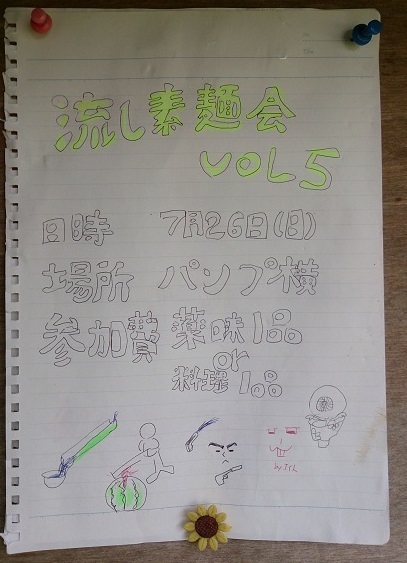 流し素麺会
VOL5
日時 7月26日(日)
場所 パンプ横
参加費 薬味1品
or
料理1品